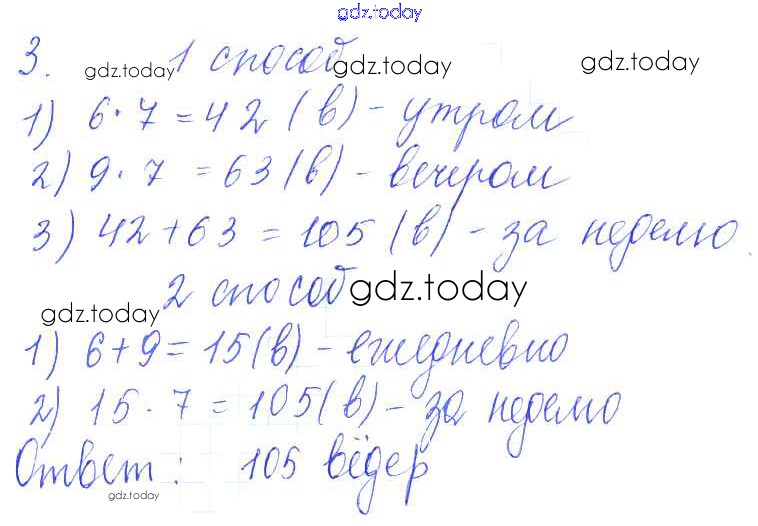 gdz.today
3. gdz.today 1 способ gdz.today gdz.today
1) 6·7=42 (в) - утром
2) 9·7=63 (в) - вечером
3) 42+63=105 (в) - за неделю.
gdz.today 2 способ gdz.today
1) 6+9=15(в) - ежедневно
2) 15·7=105(в) - за неделю
Ответ: 105 вёдер
gdz.today gdz.today